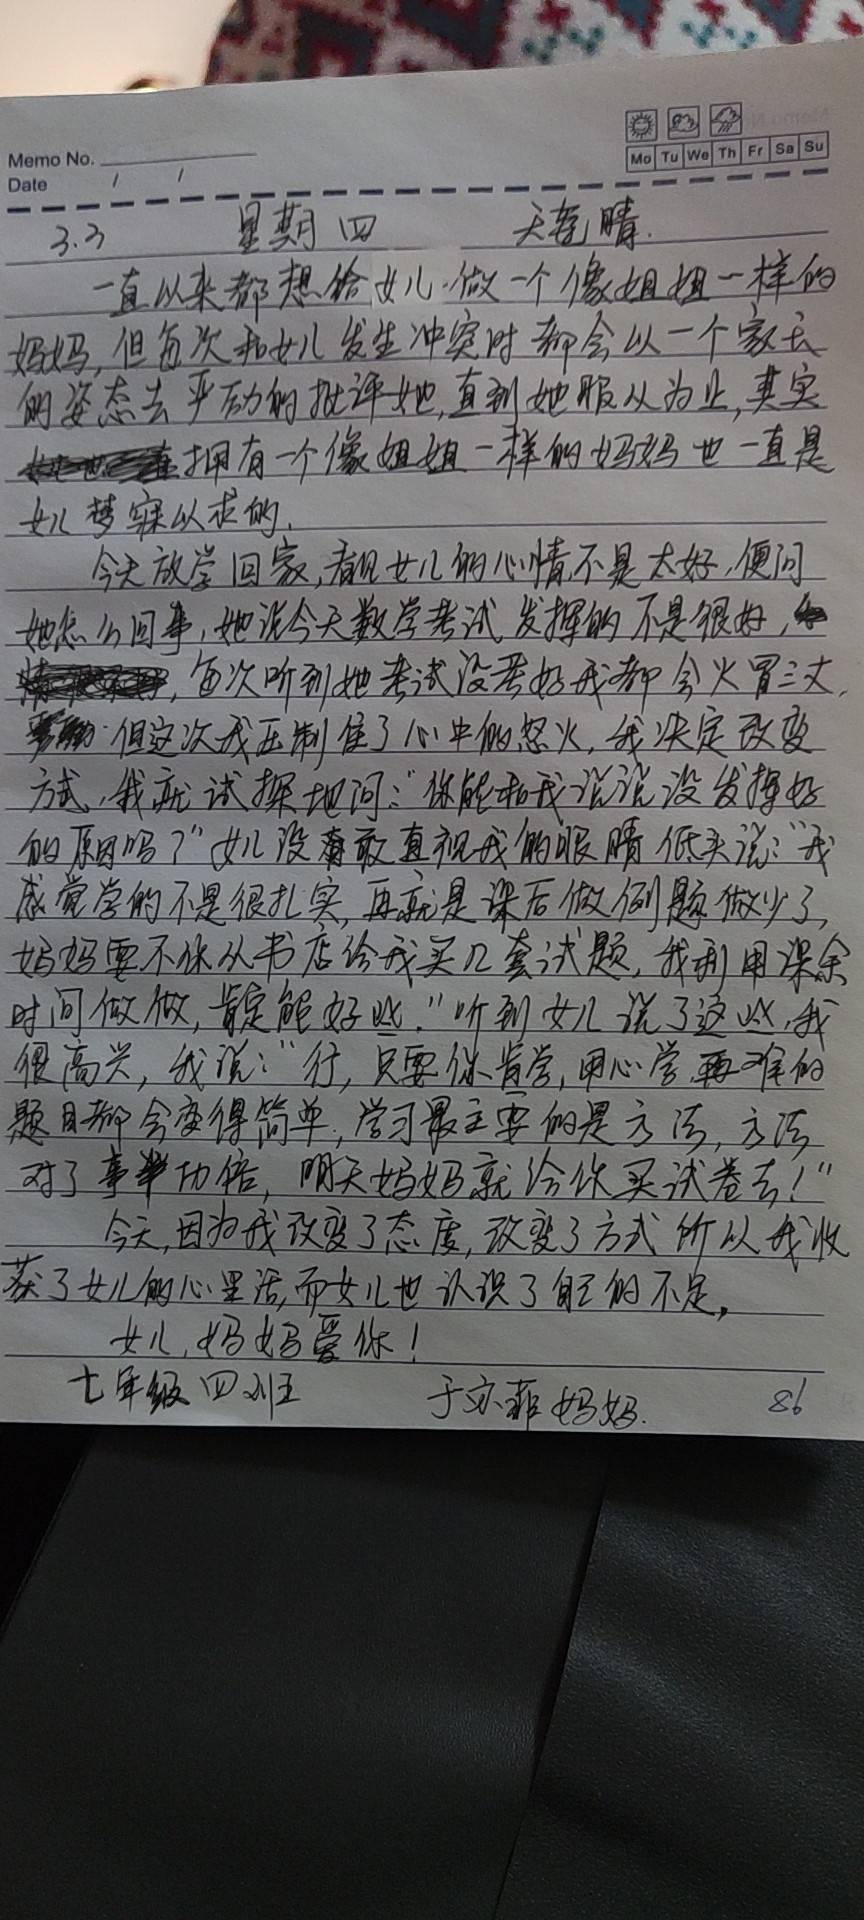 Memo No.
Date / /
Mo Tu We Th Fr Sa Su
3.3 星期四 天气晴.
一直以来都想给女儿做一个像姐姐一样的
妈妈,但每次和女儿发生冲突时都会以一个家长
的姿态去严厉的批评她,直到她服从为止,其实
拥有一个像姐姐一样的妈妈也一直是
女儿梦寐以求的.
今天放学回家,看见女儿的心情不是太好,便问
她怎么回事,她说今天数学考试发挥的不是很好,
,每次听到她考试没考好我都会火冒三丈,
但这次我压制住了心中的怒火,我决定改变
方式,我就试探地问:“你能和我说说没发挥好
的原因吗?”女儿没有敢直视我的眼睛低头说:“我
感觉学的不是很扎实,再就是课后做例题做少了,
妈妈要不你从书店给我买几套试题,我利用课余
时间做做,肯定能好些.”听到女儿说了这些,我
很高兴,我说:“行,只要你肯学,用心学再难的
题目都会变得简单,学习最主要的是方法,方法
对了事半功倍,明天妈妈就给你买试卷去!”
今天,因为我改变了态度,改变了方式所以我收
获了女儿的心里话,而女儿也认识了自己的不足,
女儿,妈妈爱你!
七年级四班 于 菲妈妈.
86